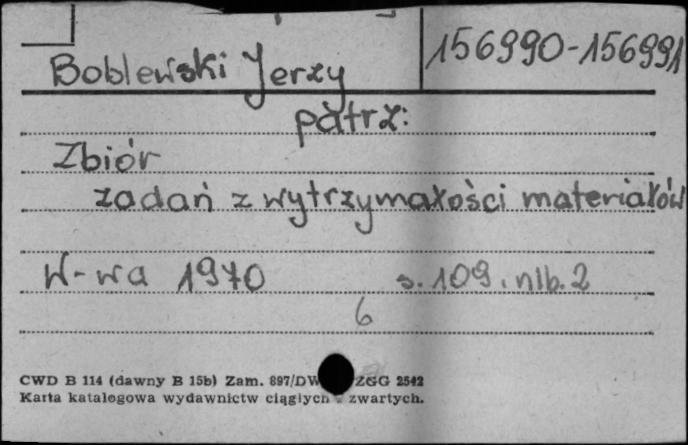 Boblewski Jerzy
156990-156991
patrz:
Zbiór
zadań z wytrzymałości materiałów
W-wa 1970 s. 109, nlb. 2
6
CWD B 114 (dawny B 15b) Zam. 897/DW ZGG 2542
Karta katalogowa wydawnictw ciągłych zwartych.